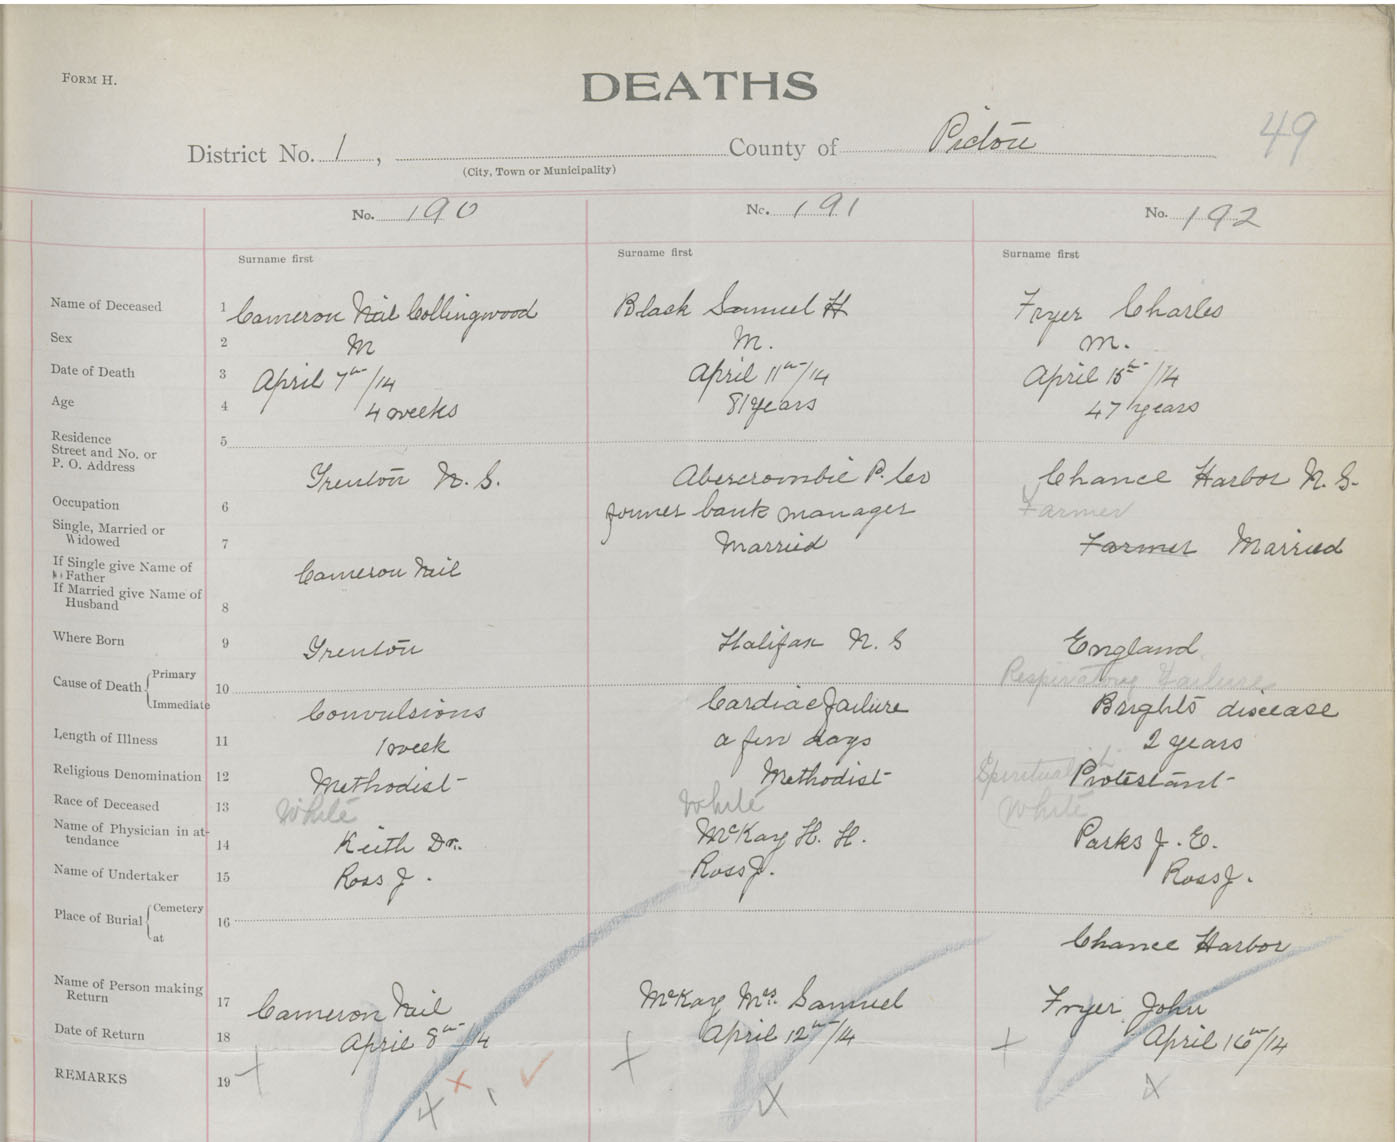 FORM H.
DEATHS
49
District No. 1, County of Pictou
(City, Town or Municipality)
No. 190 No. 191 No. 192
Surname first Surname first Surname first
Name of Deceased 1 Cameron Neil Collingwood Black Samuel H Fryer Charles
Sex 2 M M. M.
Date of Death 3 April 7th/14 April 11th/14 April 15th/14
Age 4 4 weeks 81 years 47 years
Residence 5
Street and No. or
P. O. Address Trenton N. S. Abercrombie P. Co Chance Harbor N. S.
Occupation 6 former bank manager Farmer
Single, Married or
Widowed 7 Married Farmer Married
If Single give Name of
Father Cameron Neil
If Married give Name of
Husband 8
Where Born 9 Trenton Halifax N. S England
Cause of Death Primary 10 Respiratory Failure
Immediate Convulsions Cardiac failure Brights disease
Length of Illness 11 1 week a few days 2 years
Religious Denomination 12 Methodist Methodist Spiritualist Protestant
Race of Deceased 13 White White White
Name of Physician in at-
tendance 14 Keith Dr. McKay H. H. Parks J. E.
Name of Undertaker 15 Ross J. Ross J. Ross J.
Place of Burial Cemetery 16
at Chance Harbor
Name of Person making
Return 17 Cameron Neil McKay Mrs. Samuel Fryer John
Date of Return 18 April 8th/14 April 12th/14 April 16th/14
REMARKS 19